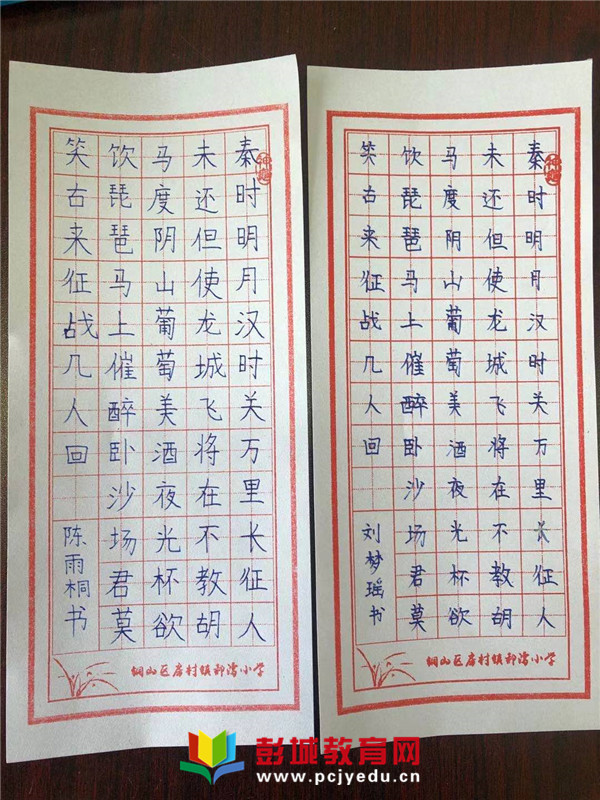 秦时明月汉时关万里长征人
未还但使龙城飞将在不教胡
马度阴山葡萄美酒夜光杯欲
饮琵琶马上催醉卧沙场君莫
笑古来征战几人回
陈雨桐书
铜山区房村镇小学
秦时明月汉时关万里长征人
未还但使龙城飞将在不教胡
马度阴山葡萄美酒夜光杯欲
饮琵琶马上催醉卧沙场君莫
笑古来征战几人回
刘梦瑶书
铜山区房村镇小学
彭城教育网
www.pcjyedu.cn